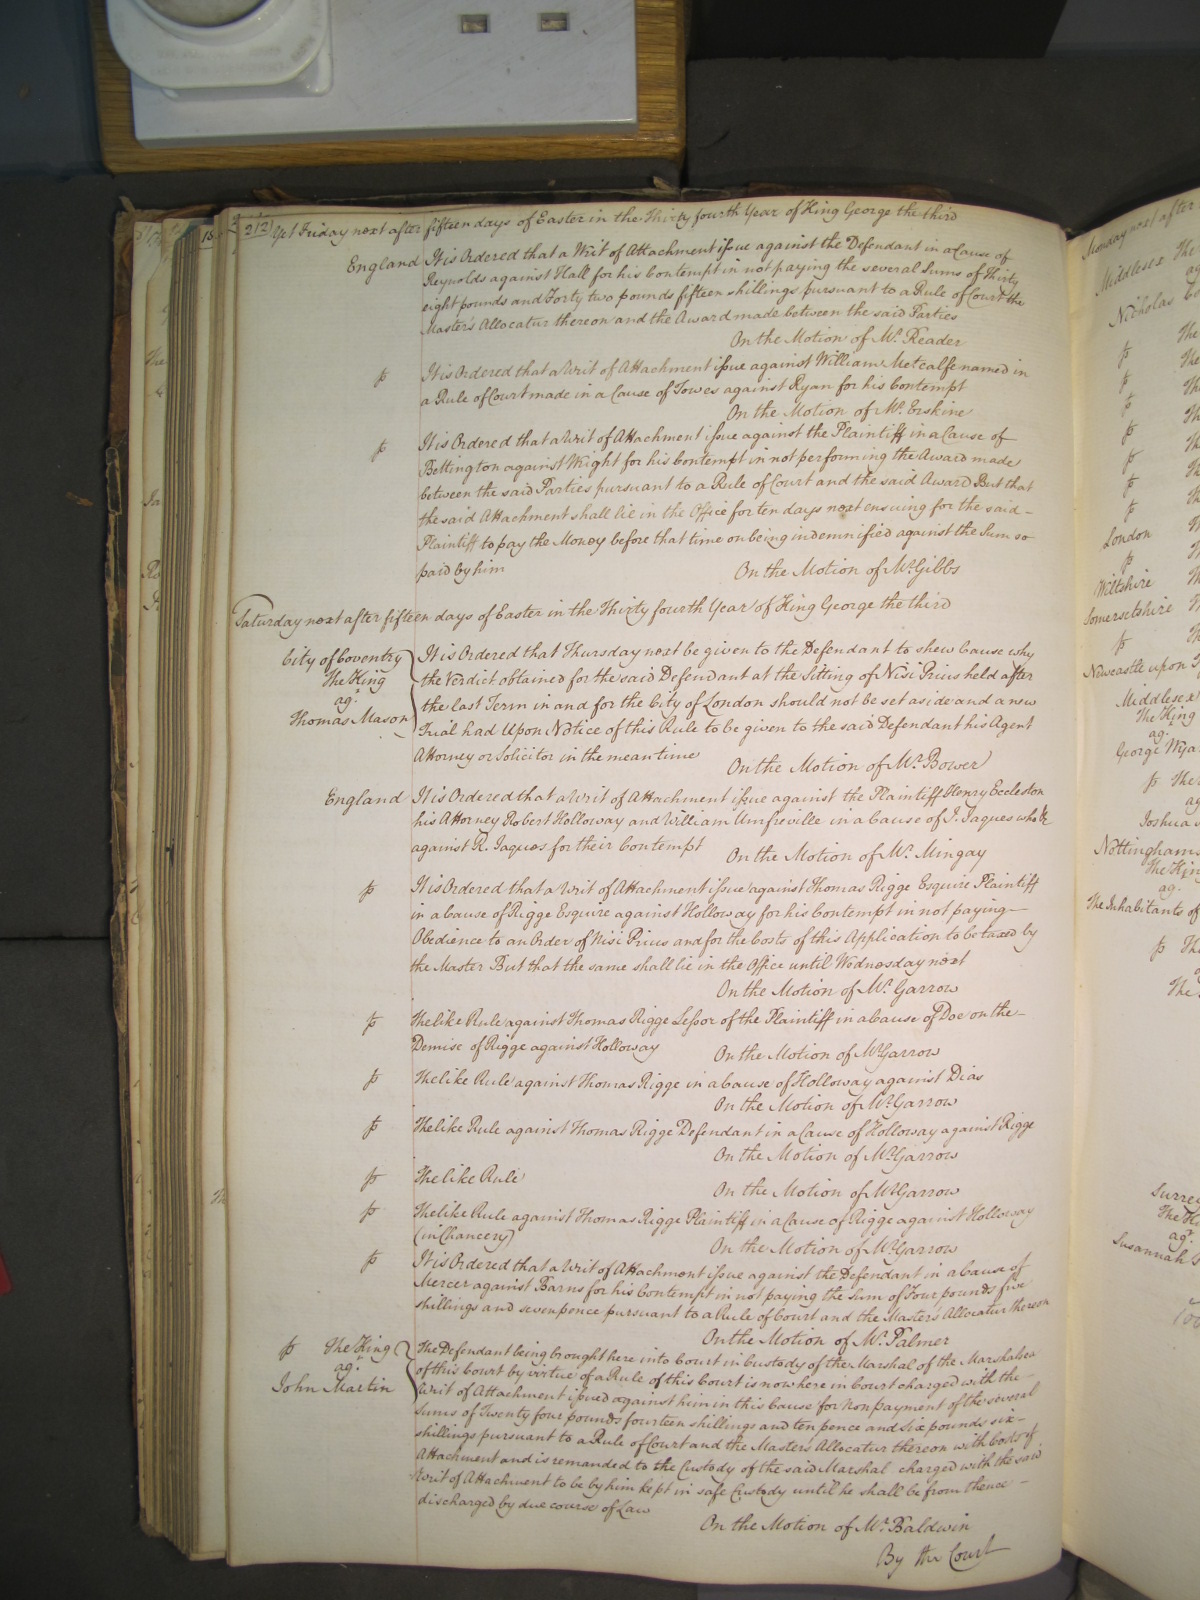 212
Yet Friday next after fifteen days of Easter in the Thirty fourth Year of King George the third
England It is Ordered that a Writ of Attachment issue against the Defendant in a Cause of
Reynolds against Hall for his Contempt in not paying the several Sums of Thirty
eight pounds and Forty two pounds fifteen shillings pursuant to a Rule of Court the
Master's Allocatur thereon and the Award made between the said Parties
On the Motion of Mr. Reader
It is Ordered that a Writ of Attachment issue against William Metcalfe named in
a Rule of Court made in a Cause of Towes against Ryan for his Contempt
On the Motion of Mr. Erskine
It is Ordered that a Writ of Attachment issue against the Plaintiff in a Cause of
Bettington against Wright for his Contempt in not performing the Award made
between the said Parties pursuant to a Rule of Court and the said Award But that
the said Attachment shall lie in the Office for ten days next ensuing for the said
Plaintiff to pay the Money before that time on being indemnified against the Sum so
paid by him On the Motion of Mr. Gibbs
Saturday next after fifteen days of Easter in the Thirty fourth Year of King George the third
City of Coventry
The King
agt.
Thomas Mason
It is Ordered that Thursday next be given to the Defendant to shew Cause why
the Verdict obtained for the said Defendant at the Sitting of Nisi Prius held after
the last Term in and for the City of London should not be set aside and a new
Trial had Upon Notice of this Rule to be given to the said Defendant his Agent
Attorney or Solicitor in the mean time On the Motion of Mr. Bower
England It is Ordered that a Writ of Attachment issue against the Plaintiff Henry Eccleston
his Attorney Robert Holloway and William Umfreville in a Cause of J. Jaques who &c
against R. Jaques for their Contempt On the Motion of Mr. Mingay
It is Ordered that a Writ of Attachment issue against Thomas Rigge Esquire Plaintiff
in a Cause of Rigge Esquire against Holloway for his Contempt in not paying
Obedience to an Order of Nisi Prius and for the Costs of this Application to be taxed by
the Master But that the same shall lie in the Office until Wednesday next
On the Motion of Mr. Garrow
The like Rule against Thomas Rigge Lessor of the Plaintiff in a Cause of Doe on the
Demise of Rigge against Holloway On the Motion of Mr. Garrow
The like Rule against Thomas Rigge in a Cause of Holloway against Dias
On the Motion of Mr. Garrow
The like Rule against Thomas Rigge Defendant in a Cause of Holloway against Rigge
On the Motion of Mr. Garrow
The like Rule
On the Motion of Mr. Garrow
The like Rule against Thomas Rigge Plaintiff in a Cause of Rigge against Holloway
(in Chancery)
On the Motion of Mr. Garrow
It is Ordered that a Writ of Attachment issue against the Defendant in a Cause of
Mercer against Barns for his Contempt in not paying the Sum of Four pounds five
shillings and sevenpence pursuant to a Rule of Court and the Master's Allocatur thereon
On the Motion of Mr. Palmer
The King
agt.
John Martin
The Defendant being brought here into Court in Custody of the Marshal of the Marshalsea
of this Court by virtue of a Rule of this Court is now here in Court charged with the
Writ of Attachment issued against him in this Cause for Nonpayment of the several
Sums of Twenty four pounds fourteen shillings and ten pence and Six pounds six
shillings pursuant to a Rule of Court and the Masters Allocatur thereon with Costs of
Attachment and is remanded to the Custody of the said Marshal charged with the said
Writ of Attachment to be by him kept in safe Custody until he shall be from thence
discharged by due course of Law
On the Motion of Mr. Baldwin
By the Court
Monday next after
Middlesex The
Nicholas
London
Wiltshire
Somersetshire
Newcastle upon
Middlesex
The King
agt.
George
Joshua
Nottingham
The King
agt.
The Inhabitants of
The
Surrey
The
agt.
Susannah